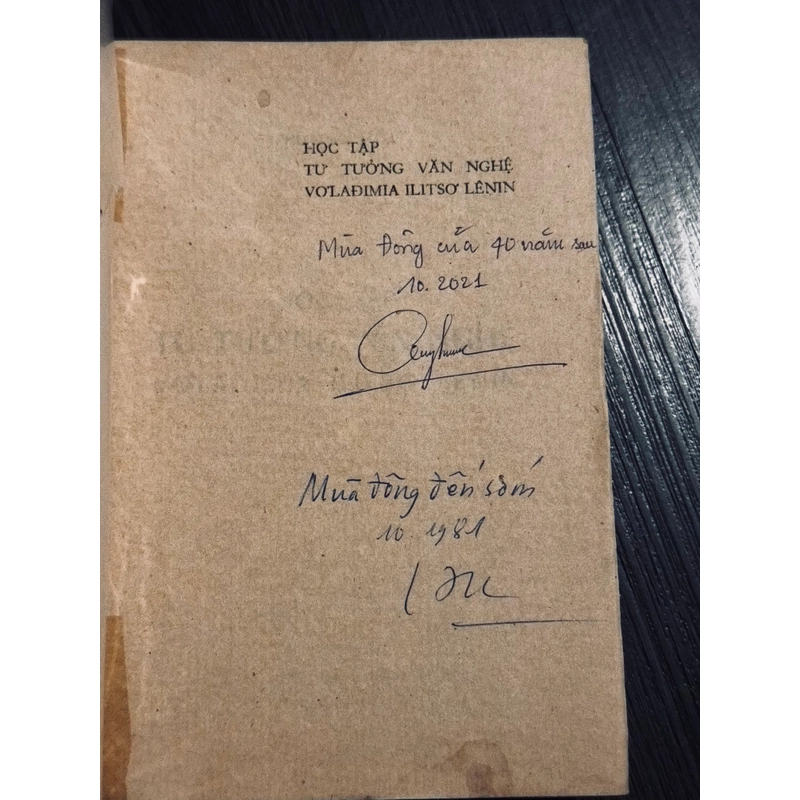 HỌC TẬP
TƯ TƯỞNG VĂN NGHỆ
VƠLAĐIMIA ILITSƠ LÊNIN
Mùa Đông của 40 năm sau
10.2021
Mùa đông đến sớm
10.1981